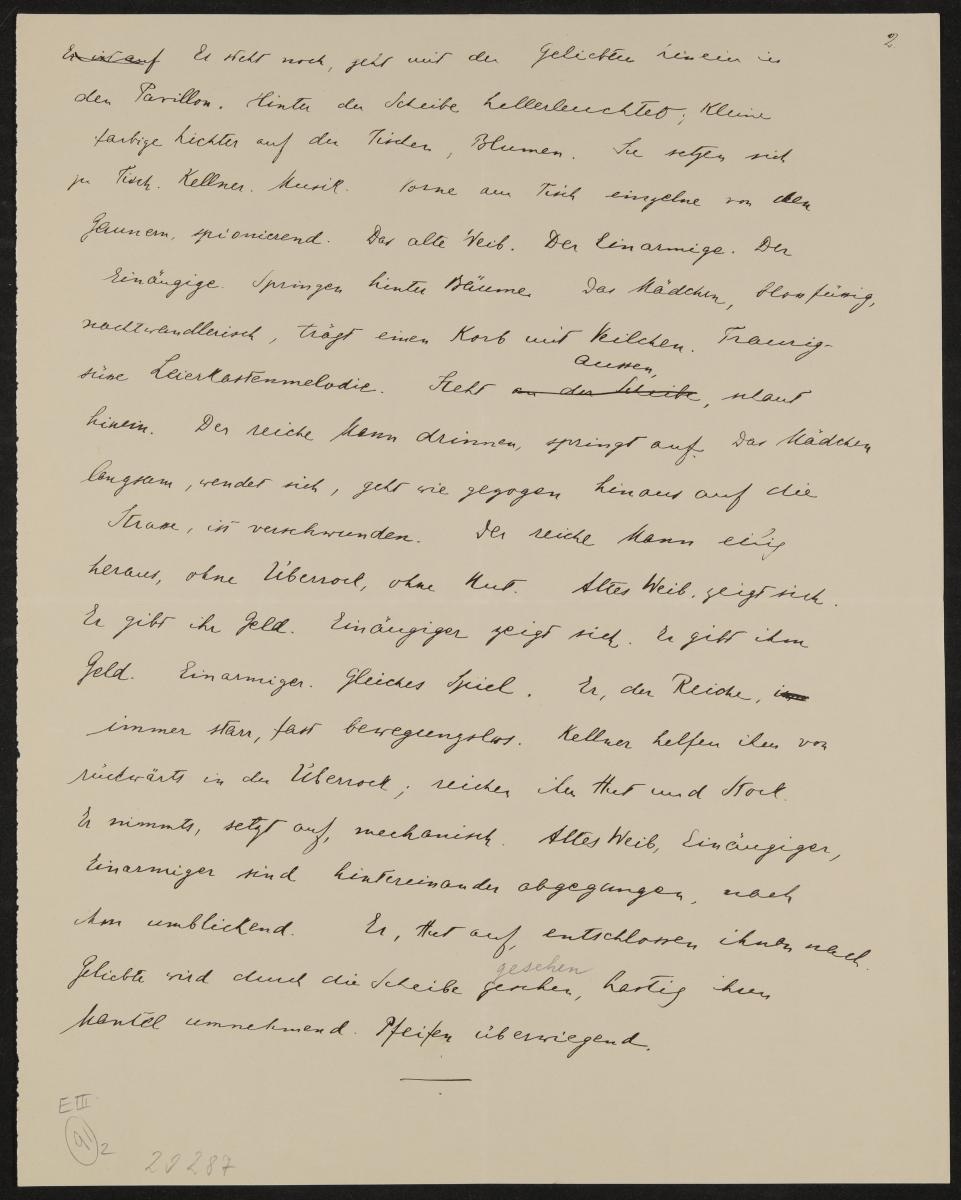 2
Er ist auf Er steht noch, geht mit der Geliebten hinein in
den Pavillon. Hinter der Scheibe hellerleuchtet; kleine
farbige Lichter auf den Tischen, Blumen. Sie setzen sich
zu Tisch. Kellner. Musik. Vorne am Tisch einzelne von den
Gaunern, spionierend. Das alte Weib. Der Einarmige. Der
Einäugige. Springen hinter Bäume. Das Mädchen, blossfüssig,
nachtwandlerisch, trägt einen Korb mit Veilchen. Traurig-
aussen,
süsse Leierkastenmelodie. Steht an der Scheibe, schaut
hinein. Der reiche Mann drinnen, springt auf. Das Mädchen
langsam, wendet sich, geht wie gezogen hinaus auf die
Strasse, ist verschwunden. Der reiche Mann eilig
heraus, ohne Überrock, ohne Hut. Altes Weib, zeigt sich.
Er gibt ihr Geld. Einäugiger zeigt sich. Er gibt ihm
Geld. Einarmiger. Gleiches Spiel. Er, der Reiche, im
immer starr, fast bewegungslos. Kellner helfen ihm von
rückwärts in den Überrock; reichen ihm Hut und Stock.
Er nimmts, setzt auf, mechanisch. Altes Weib, Einäugiger,
Einarmiger sind hintereinander abgegangen, nach
ihm umblickend. Er, Hut auf, entschlossen ihnen nach.
gesehen
Geliebte wird durch die Scheibe gesehen, hastig ihren
Mantel umnehmend. Pfeifen überwiegend.
E III
91
2
29287